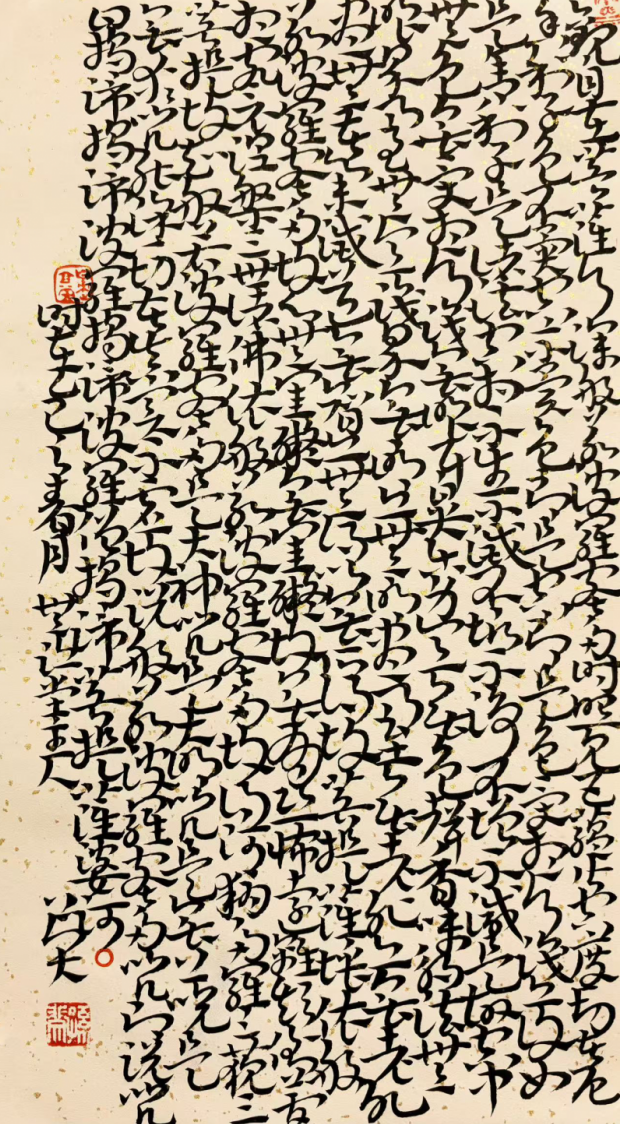 觀自在菩薩行深般若波羅蜜多時照見五蘊皆空度一切苦厄
舍利子色不異空空不異色色即是空空即是色受想行識亦復如
是舍利子是諸法空相不生不滅不垢不淨不增不減是故空中
無色無受想行識無眼耳鼻舌身意無色聲香味觸法無
眼界乃至無意識界無無明亦無無明盡乃至無老死亦無老死
盡無苦集滅道無智亦無得以無所得故菩提薩埵依般
若波羅蜜多故心無罣礙無罣礙故無有恐怖遠離顛倒夢
想究竟涅槃三世諸佛依般若波羅蜜多故得阿耨多羅三藐三
菩提故知般若波羅蜜多是大神咒是大明咒是無上咒是
無等等咒能除一切苦真實不虛故說般若波羅蜜多咒即說咒
揭諦揭諦波羅揭諦波羅僧揭諦菩提薩婆訶
时在己之春月